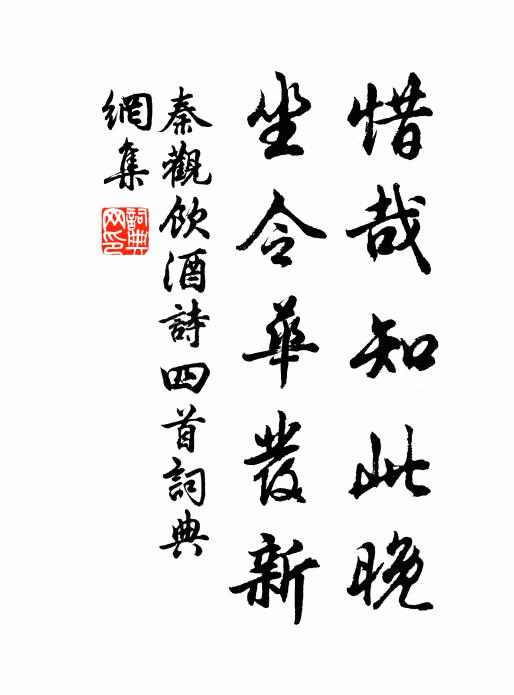 惜哉知此晚
坐令華發新
秦觀飲酒詩四首詞典
網集
詞典
网印